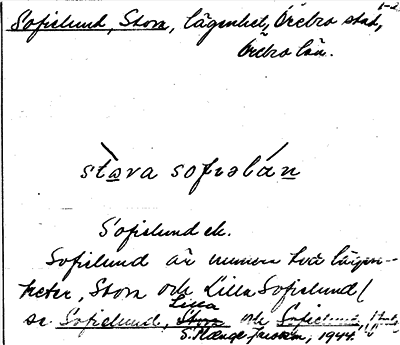 Sofielund, Stora, lägenhet, Örebro stad,
Örebro län.
stora sofiəlún
Sofielund ek.
Sofielund är numera två lägen-
heter, Stora och Lilla Sofielund (
se Sofielund, Lilla och Sofielund,
1944.